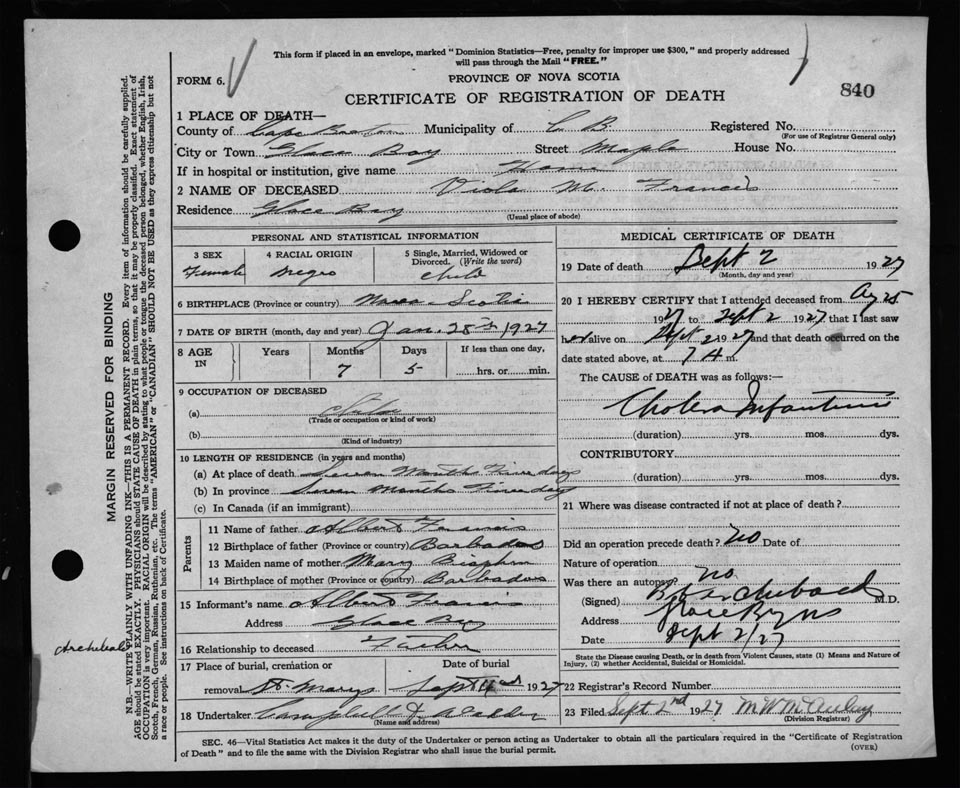 This form if placed in an envelope, marked "Dominion Statistics—Free, penalty for improper use $300," and properly addressed
will pass through the Mail "FREE."
FORM 6.
PROVINCE OF NOVA SCOTIA
840
CERTIFICATE OF REGISTRATION OF DEATH
1 PLACE OF DEATH—
County of Cape Breton Municipality of C B Registered No.
(For use of Registrar General only)
City or Town Glace Bay Street Maple House No.
If in hospital or institution, give name Home
2 NAME OF DECEASED Viola M. Francis
Residence Glace Bay
(Usual place of abode)
PERSONAL AND STATISTICAL INFORMATION
3 SEX 4 RACIAL ORIGIN 5 Single, Married, Widowed or
Divorced. (Write the word)
Female Negro Child
6 BIRTHPLACE (Province or country) Nova Scotia
7 DATE OF BIRTH (month, day and year) Jan. 28th 1927
8 AGE IN Years Months Days If less than one day,
7 5 hrs. or min.
9 OCCUPATION OF DECEASED
(a) Child
(Trade or occupation or kind of work)
(b)
(Kind of industry)
10 LENGTH OF RESIDENCE (in years and months)
(a) At place of death Seven Months Five days
(b) In province Seven Months Five days
(c) In Canada (if an immigrant)
Parents
11 Name of father Albert Francis
12 Birthplace of father (Province or country) Barbados
13 Maiden name of mother Mary
14 Birthplace of mother (Province or country) Barbados
15 Informant's name Albert Francis
Address Glace Bay
16 Relationship to deceased Father
17 Place of burial, cremation or Date of burial
removal St. Marys Sept 4 1927
18 Undertaker Campbell &
(Name and address)
MEDICAL CERTIFICATE OF DEATH
19 Date of death Sept 2 1927
(Month, day and year)
20 I HEREBY CERTIFY that I attended deceased from Aug 25
1927 to Sept 2 1927 that I last saw
her alive on Sept 2 1927 and that death occurred on the
date stated above, at 7 A m.
The CAUSE of DEATH was as follows:—
Cholera Infantum
(duration) yrs. mos. dys.
CONTRIBUTORY
(duration) yrs. mos. dys.
21 Where was disease contracted if not at place of death?
Did an operation precede death? no Date of
Nature of operation
Was there an autopsy? no
(Signed) Archibald M.D.
Address Glace Bay NS
Date Sept 2/27
State the Disease causing Death, or in death from Violent Causes, state (1) Means and Nature of
Injury, (2) whether Accidental, Suicidal or Homicidal.
22 Registrar's Record Number
23 Filed Sept 2nd 1927
(Division Registrar)
SEC. 46—Vital Statistics Act makes it the duty of the Undertaker or person acting as Undertaker to obtain all the particulars required in the "Certificate of Registration
of Death" and to file the same with the Division Registrar who shall issue the burial permit.
(OVER)
MARGIN RESERVED FOR BINDING
N.B.—WRITE PLAINLY WITH UNFADING INK—THIS IS A PERMANENT RECORD. Every item of information should be carefully supplied.
AGE should be stated EXACTLY. PHYSICIANS should STATE CAUSE OF DEATH in plain terms, so that it may be properly classified. Exact statement of
OCCUPATION is very important. RACIAL ORIGIN will be described by stating to what people or tongue the deceased person belonged, whether English, Irish,
Scotch, French, German, Russian, Ruthenian, etc. The terms "AMERICAN" or "CANADIAN" SHOULD NOT BE USED as they express citizenship but not
a race or people. See instructions on back of Certificate.
Archibald